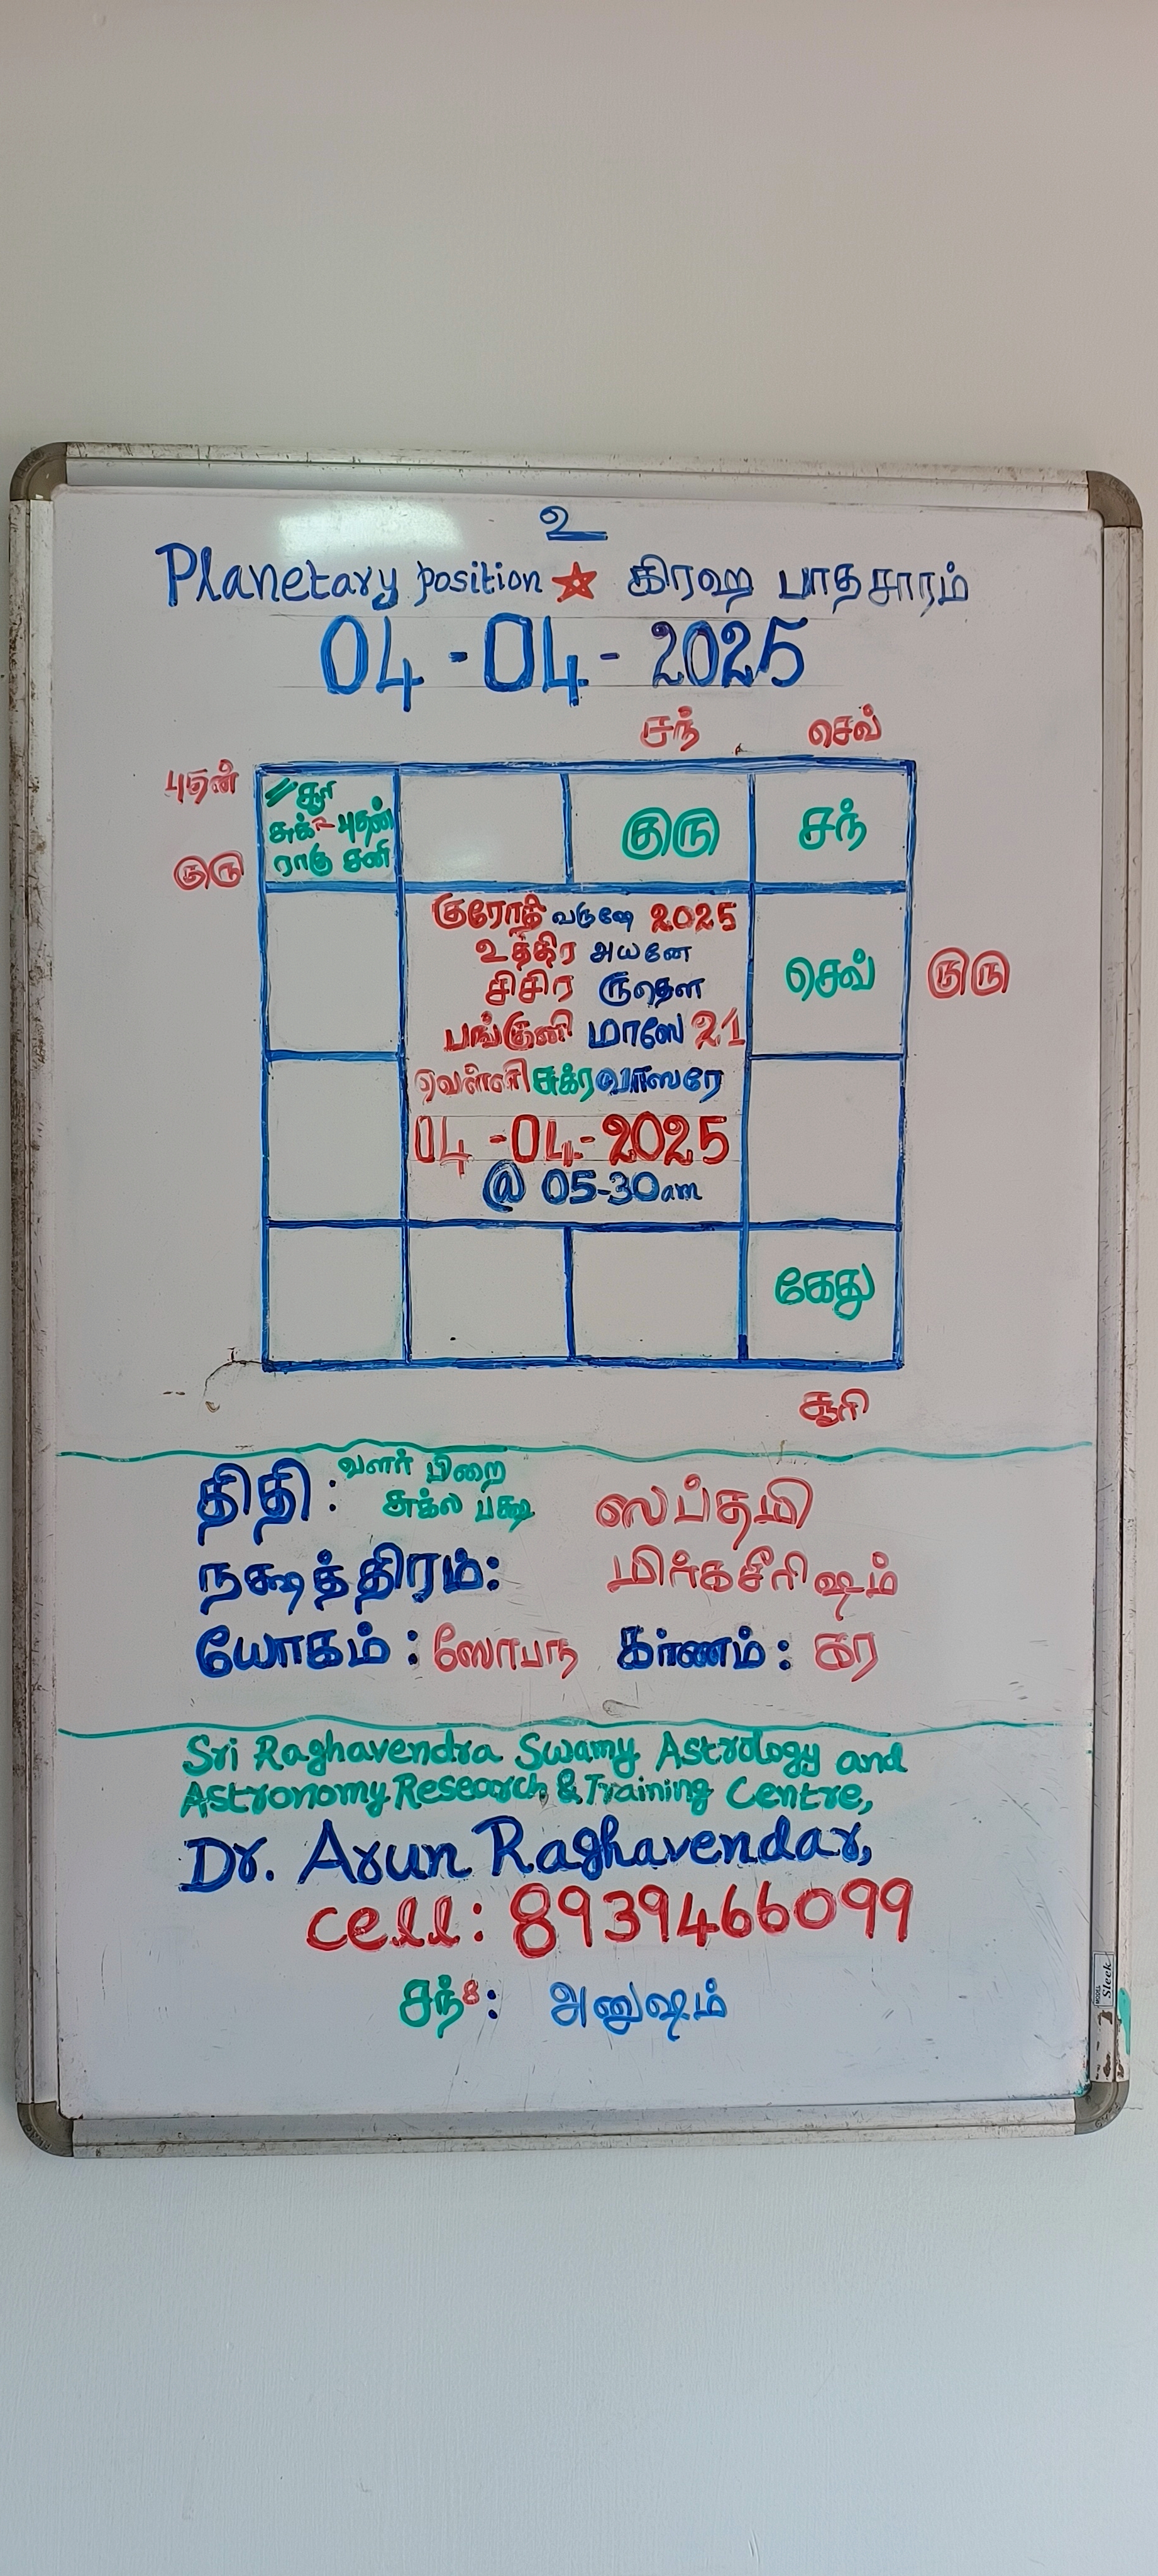 உ
Planetary position ☆ கிரஹ பாதசாரம்
04-04-2025
சந் செவ்
புதன்
குரு
சூரி
சுக் புதன்
ராகு சனி
குரு
சந்
குரோதி வருஷே 2025
உத்திர அயனே
சிசிர ருதௌ
பங்குனி மாஸே 21
வெள்ளி சுக்ரவாஸரே
04-04-2025
@ 05-30am
செவ்
குரு
கேது
சூரி
திதி: வளர் பிறை
சுக்ல பக்ஷ ஸப்தமி
நக்ஷத்திரம்: மிர்கசீரிஷம்
யோகம்: ஸோபந கர்ணம்: கர
Sri Raghavendra Swamy Astrology and
Astronomy Research & Training Centre,
Dr. Arun Raghavendar,
cell: 8939466099
சந்8: அனுஷம்
MODEL Sleek